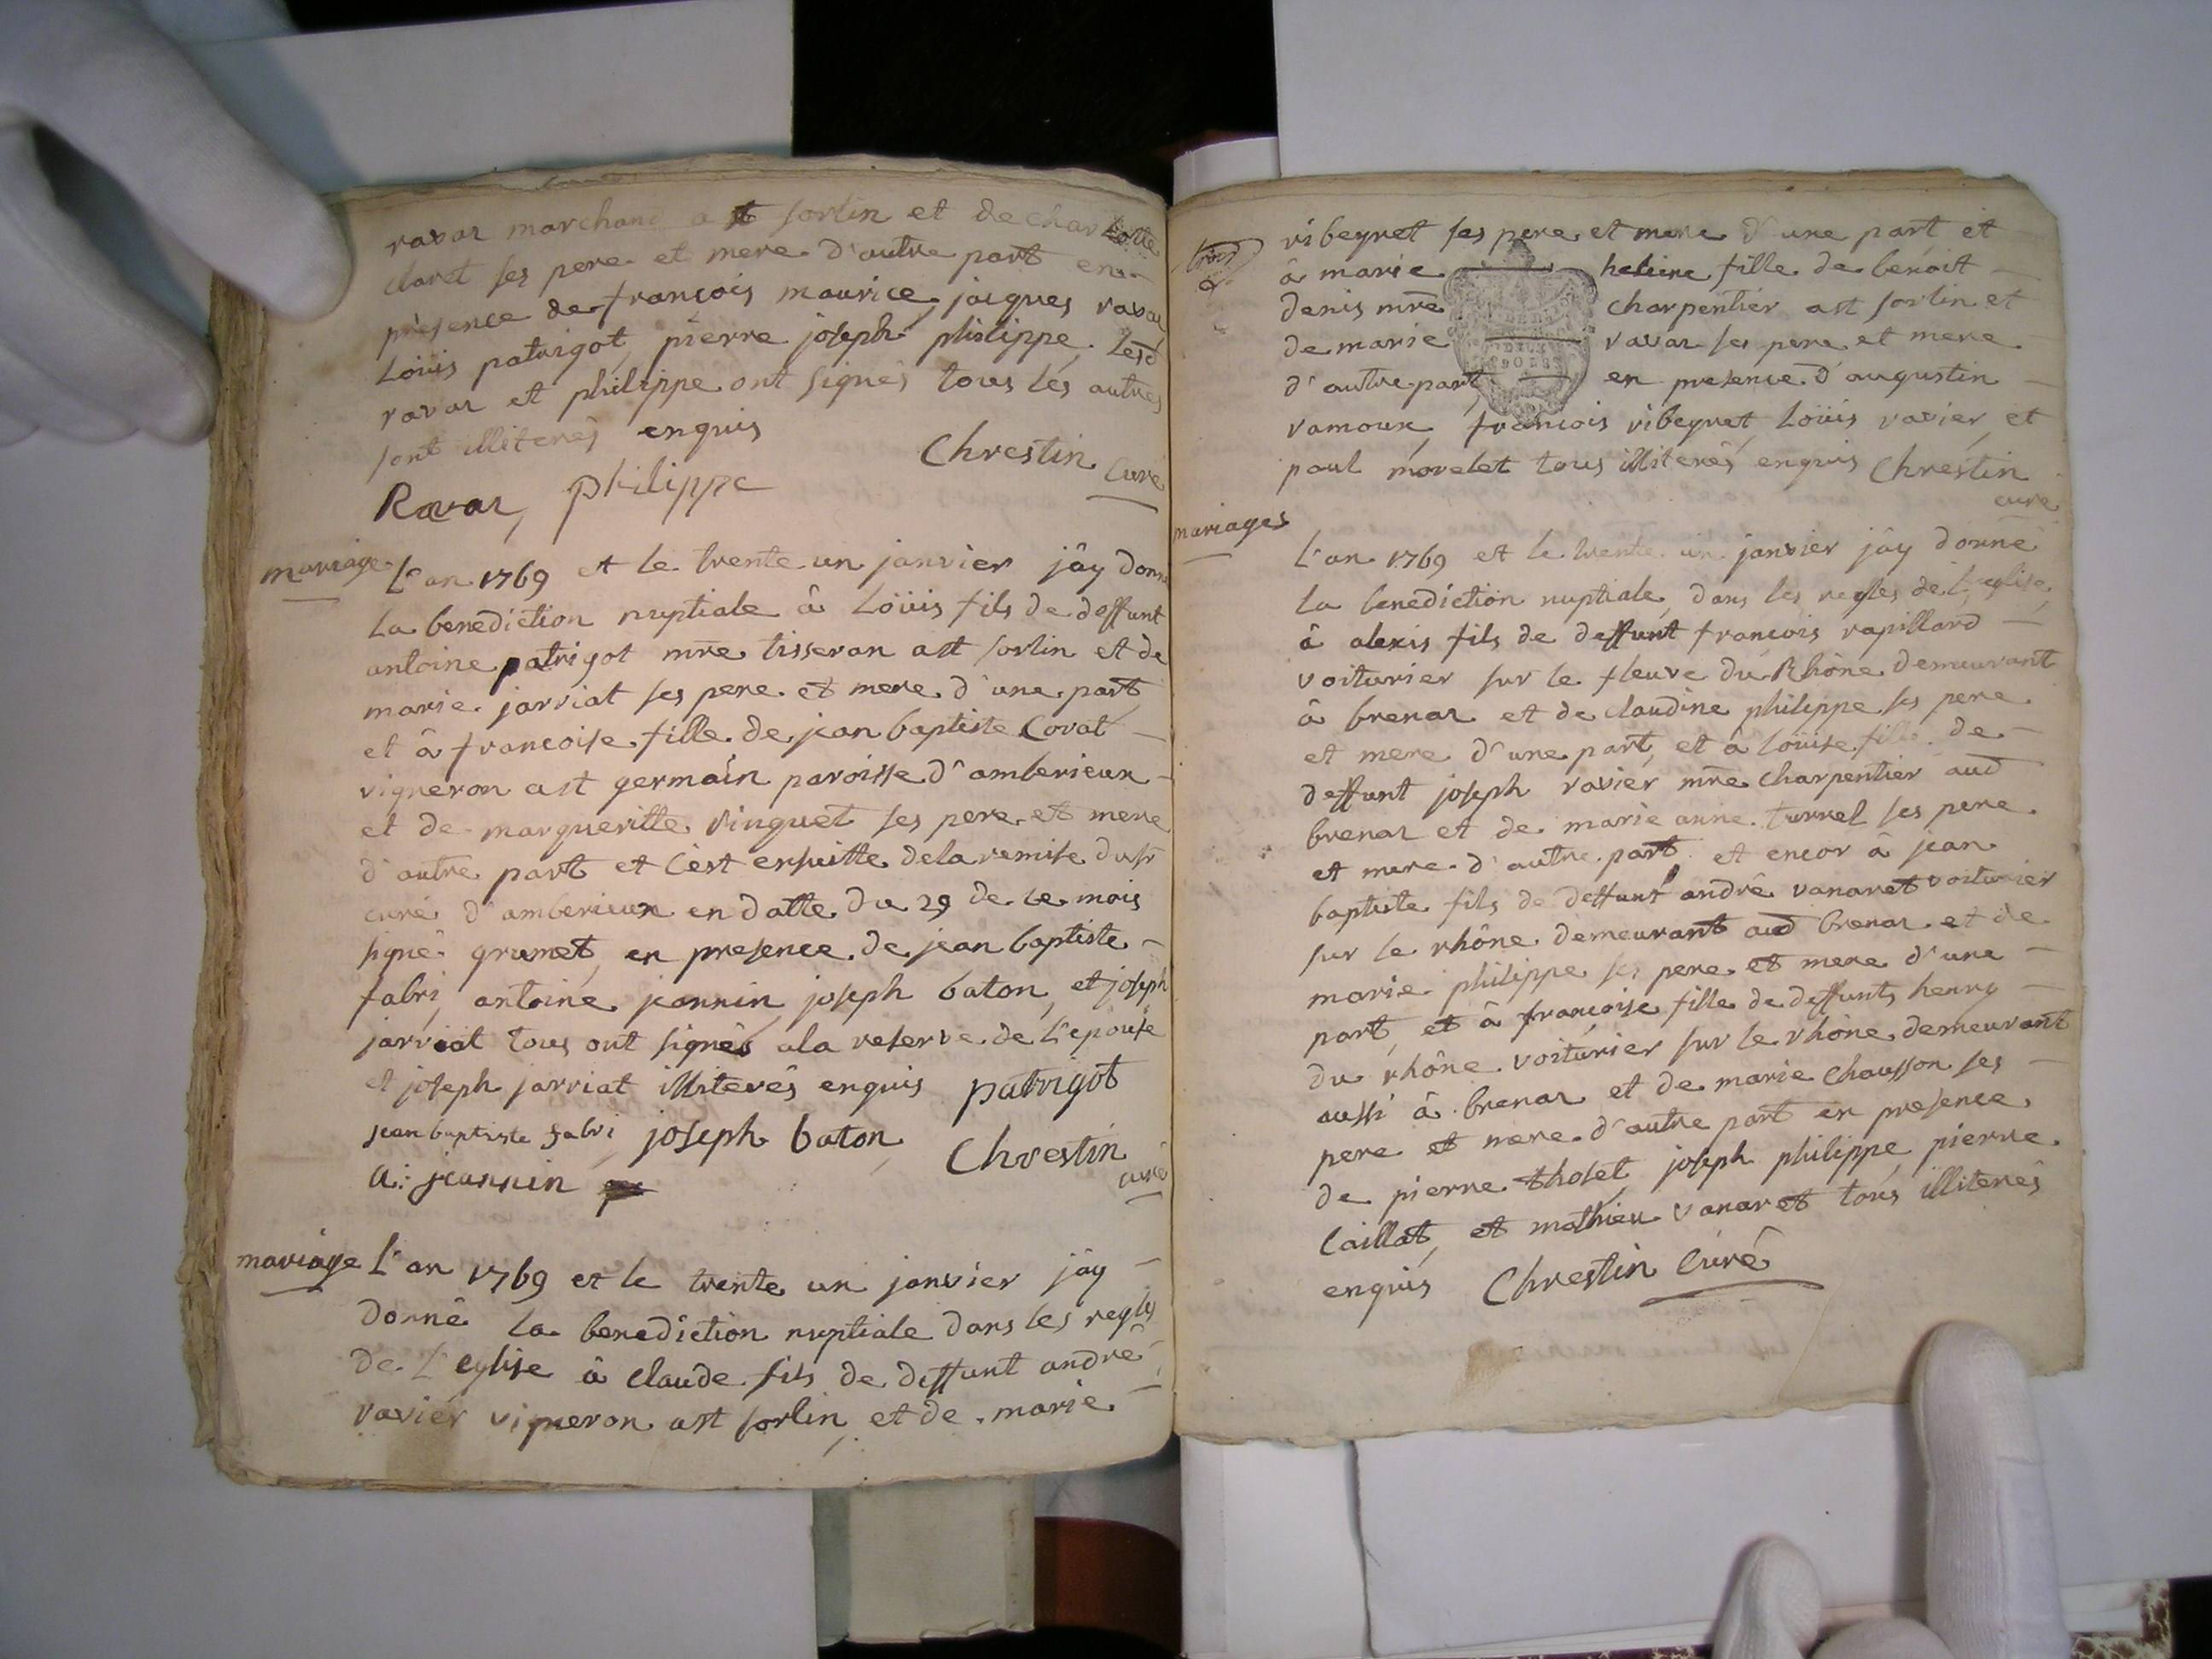 ravar marchand a st sorlin et de charlotte
claret ses pere et mere d'autre part en
presence de françois maurice, jacques ravar
Loüis patrigot, pierre joseph philippe. Lesd
ravar et philippe ont signés tous les autres
sont illiterés enquis
Chrestin curé
Ravar, philippe
mariage
L'an 1769 et le trente un janvier j'ay donné
la benediction nuptiale â Loüis fils de deffunt
antoine patrigot mre tisseran a st sorlin et de
marie jarriat ses pere et mere d'une part
et â françoise fille de jean baptiste Corat
vigneron a st germain paroisse d'amberieux
et de margueritte vinguet ses pere et mere
d'autre part et c'est ensuitte de la remise du sr
curé d'amberieux en datte du 29 de ce mois
signé grumet, en presence de jean baptiste
fabri, antoine jeannin, joseph baton, et joseph
jarriat tous ont signés a la reserve de L'epouse
et joseph jarriat illiterés enquis patrigot
jean baptiste fabri, joseph baton, Chrestin
a: jeannin curé
mariage
L'an 1769 et le trente un janvier j'ay
donné la benediction nuptiale dans les regles
de L'eglise â claude fils de deffunt andré
ravier vigneron a st sorlin, et de marie
ribeyret ses pere et mere d'une part et
â marie heleine fille de benoit
denis mre charpentier a st sorlin et
de marie ravar ses pere et mere
d'autre part, en presence d'augustin
vamoux, françois ribeyret, Loüis ravier, et
paul morelet tous illiterés enquis Chrestin
curé
mariages
L'an 1769 et le trente un janvier j'ay donné
la benediction nuptiale, dans les regles de l'eglise,
â alexis fils de deffunt françois rapillard
voiturier sur le fleuve du Rhône demeurant
â brenar et de claudine philippe ses pere
et mere d'une part, et â loüise fille de
deffunt joseph ravier mre charpentier aud
brenar et de marie anne turrel ses pere
et mere d'autre part et encor â jean
baptiste fils de deffunt andré vanaret voiturier
sur le rhône demeurant aud brenar et de
marie philippe ses pere et mere d'une
part, et â françoise fille de deffunts henry
du rhône voiturier sur le rhône demeurant
aussi â brenar et de marie chausson ses
pere et mere d'autre part en presence
de pierre tholet, joseph philippe, pierre
Caillat, et mathieu vanaret tous illiterés
enquis Chrestin Curé